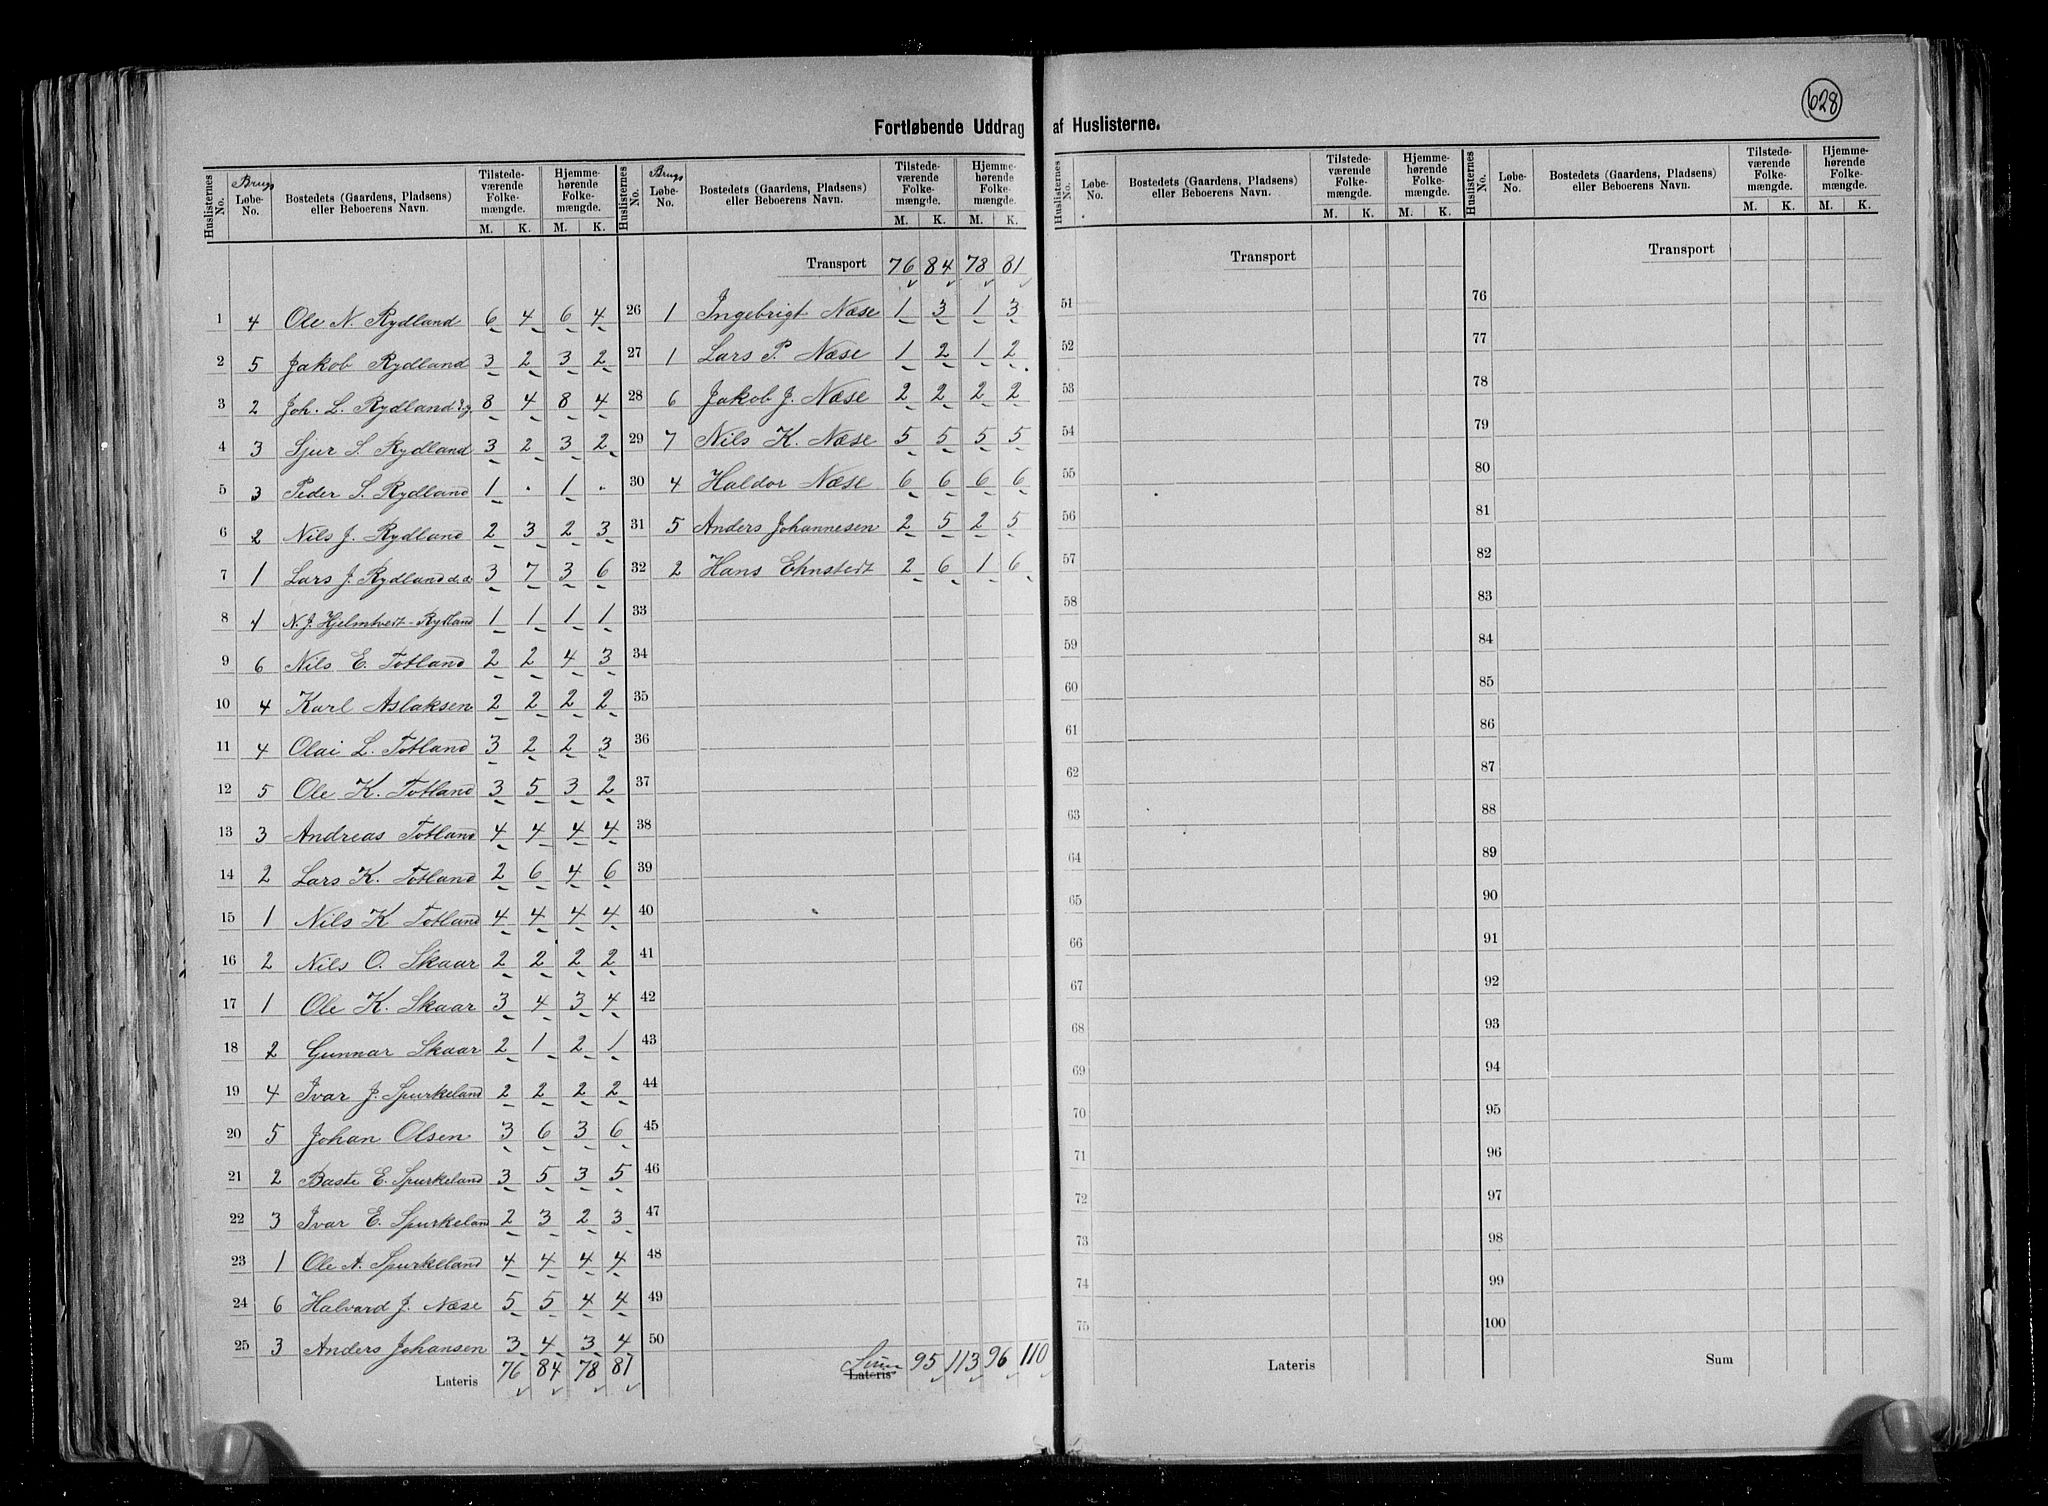 628
Fortløbende Uddrag af Huslisterne.
Huslisternes No. | Brugs Løbe-No. | Bostedets (Gaardens, Pladsens) eller Beboerens Navn. | Tilstede-værende Folke-mængde. M. K. | Hjemme-hørende Folke-mængde. M. K.
1 4 Ole N. Rydland 6 4 6 4
2 5 Jakob Rydland 3 2 3 2
3 2 Joh. L. Rydland 8 4 8 4
4 3 Sjur S. Rydland 3 2 3 2
5 3 Peder S. Rydland 1 . 1 .
6 2 Nils J. Rydland 2 3 2 3
7 1 Lars J. Rydland 3 7 3 6
8 1 N. J. Hjelmtvedt-Rydland 1 1 1 1
9 6 Nils E. Totland 2 2 4 3
10 4 Karl Aslaksen 2 2 2 2
11 4 Olai L. Totland 3 2 2 3
12 5 Ole K. Totland 3 5 3 2
13 3 Andreas Totland 4 4 4 4
14 2 Lars K. Totland 2 6 4 6
15 1 Nils K Totland 4 4 4 4
16 2 Nils O. Skaar 2 2 2 2
17 1 Ole K. Skaar 3 4 3 4
18 2 Gunnar Skaar 2 1 2 1
19 4 Ivar J. Spurkeland 2 2 2 2
20 5 Johan Olsen 3 6 3 6
21 2 Baste E. Spurkeland 3 5 3 5
22 3 Ivar E. Spurkeland 2 3 2 3
23 1 Ole A. Spurkeland 4 4 4 4
24 6 Halvard J. Næse 5 5 4 4
25 3 Anders Johansen 3 4 3 4
Lateris 76 84 78 81
Huslisternes No. | Brugs Løbe-No. | Bostedets (Gaardens, Pladsens) eller Beboerens Navn. | Tilstede-værende Folke-mængde. M. K. | Hjemme-hørende Folke-mængde. M. K.
Transport 76 84 78 81
26 1 Ingebrigt Næse 1 3 1 3
27 1 Lars P. Næse 1 2 1 2
28 6 Jakob J. Næse 2 2 2 2
29 7 Nils K. Næse 5 5 5 5
30 4 Haldor Næse 6 6 6 6
31 5 Anders Johannesen 2 5 2 5
32 2 Hans Ehnstedt 2 6 1 6
33
34
35
36
37
38
39
40
41
42
43
44
45
46
47
48
49
50
Sum Lateris 95 113 96 110
Huslisternes No. | Løbe-No. | Bostedets (Gaardens, Pladsens) eller Beboerens Navn. | Tilstede-værende Folke-mængde. M. K. | Hjemme-hørende Folke-mængde. M. K.
Transport
51
52
53
54
55
56
57
58
59
60
61
62
63
64
65
66
67
68
69
70
71
72
73
74
75
Lateris
Huslisternes No. | Løbe-No. | Bostedets (Gaardens, Pladsens) eller Beboerens Navn. | Tilstede-værende Folke-mængde. M. K. | Hjemme-hørende Folke-mængde. M. K.
Transport
76
77
78
79
80
81
82
83
84
85
86
87
88
89
90
91
92
93
94
95
96
97
98
99
100
Sum